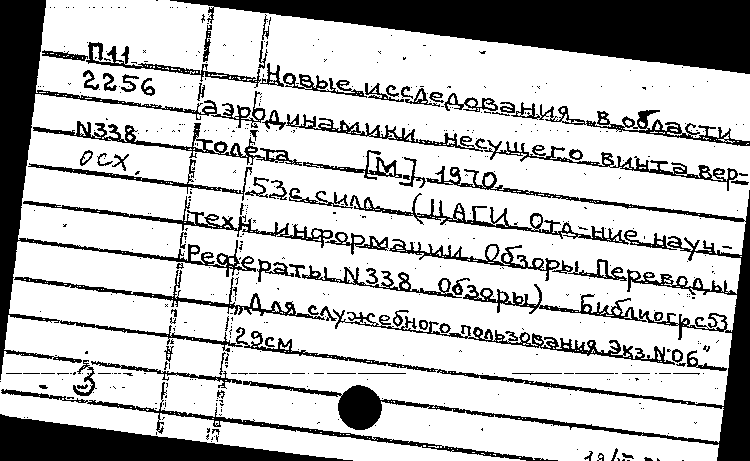 П11
2256
N338
осх.
Новые исследования в области
аэродинамики несущего винта вер-
толета. [М.], 1970.
53с. с илл. (ЦАГИ. Отд-ние науч.-
техн. информации. Обзоры. Переводы.
Рефераты N338. Обзоры) Библиогр. с 53
„Для служебного пользования. Экз. №06."
29см.
3